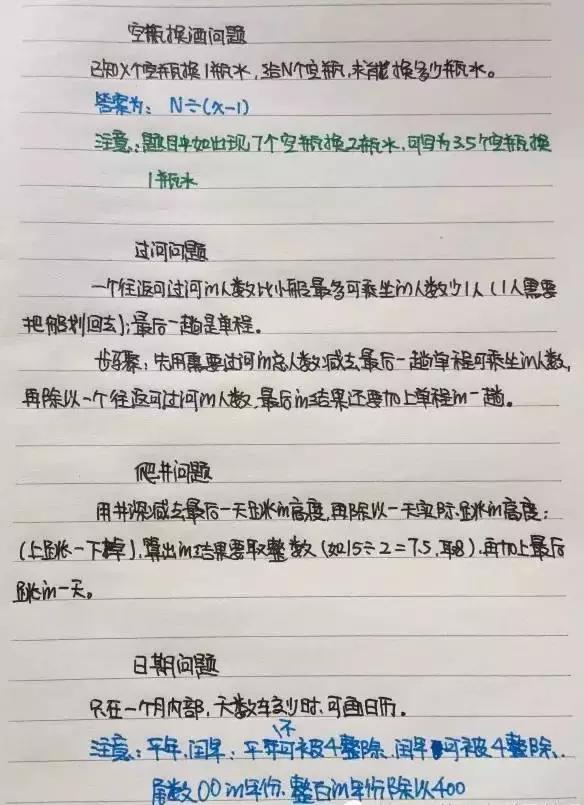 空瓶换酒问题
已知X个空瓶换1瓶水，给N个空瓶，求能换多少瓶水。
答案为：N÷(x-1)
注意：题目中如出现7个空瓶换2瓶水，可写为3.5个空瓶换
1瓶水
过河问题
一个往返可过河的人数比小船最多可乘坐的人数少1人（1人需要
把船划回去）；最后一趟是单程。
步骤：先用需要过河的总人数减去最后一趟单程可乘坐的人数，
再除以一个往返可过河的人数，最后的结果还要加上单程的一趟。
爬井问题
用井深减去最后一天跳的高度，再除以一天实际跳的高度：
（上跳－下掉），算出的结果要取整数（如15÷2=7.5，取8），再加上最后
跳的一天。
日期问题
只在一个月内部，天数较少时，可画日历。
注意：平年、闰年：平年不可被4整除，闰年可被4整除、
尾数00的年份，整百的年份除以400